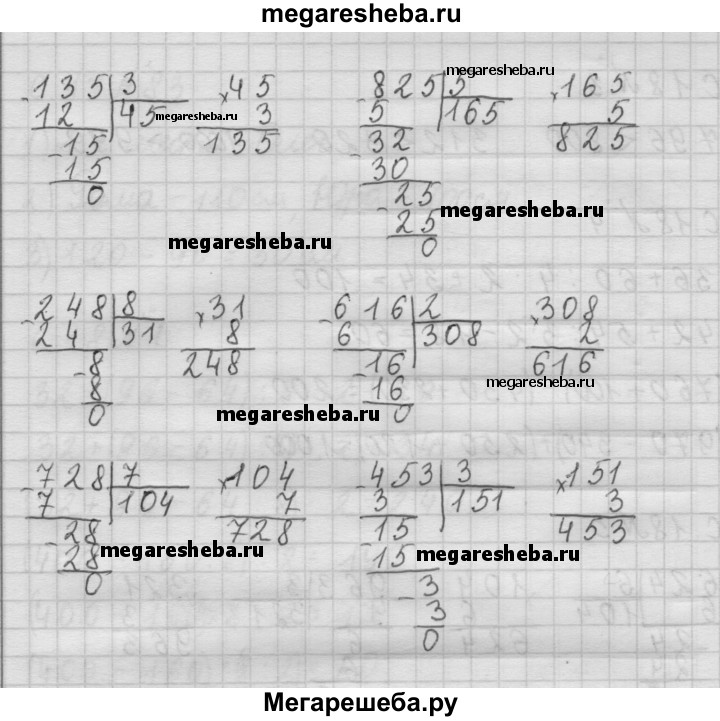 megaresheba.ru
135 | 3    × 45    825 | 5    × 165
- 12 | 45    3    - 5 | 165    5
- 15    135    - 32    825
15    - 30
0    - 25
25
0
megaresheba.ru
megaresheba.ru
megaresheba.ru
megaresheba.ru
248 | 8    × 31    616 | 2    × 308
- 24 | 31    8    - 6 | 308    2
- 8    248    - 16    616
8    16
0    0
megaresheba.ru
megaresheba.ru
728 | 7    × 104    453 | 3    × 151
- 7 | 104    7    - 3 | 151    3
- 28    728    - 15    453
28    15
0    - 3
3
0
megaresheba.ru
megaresheba.ru
Мегарешеба.ру